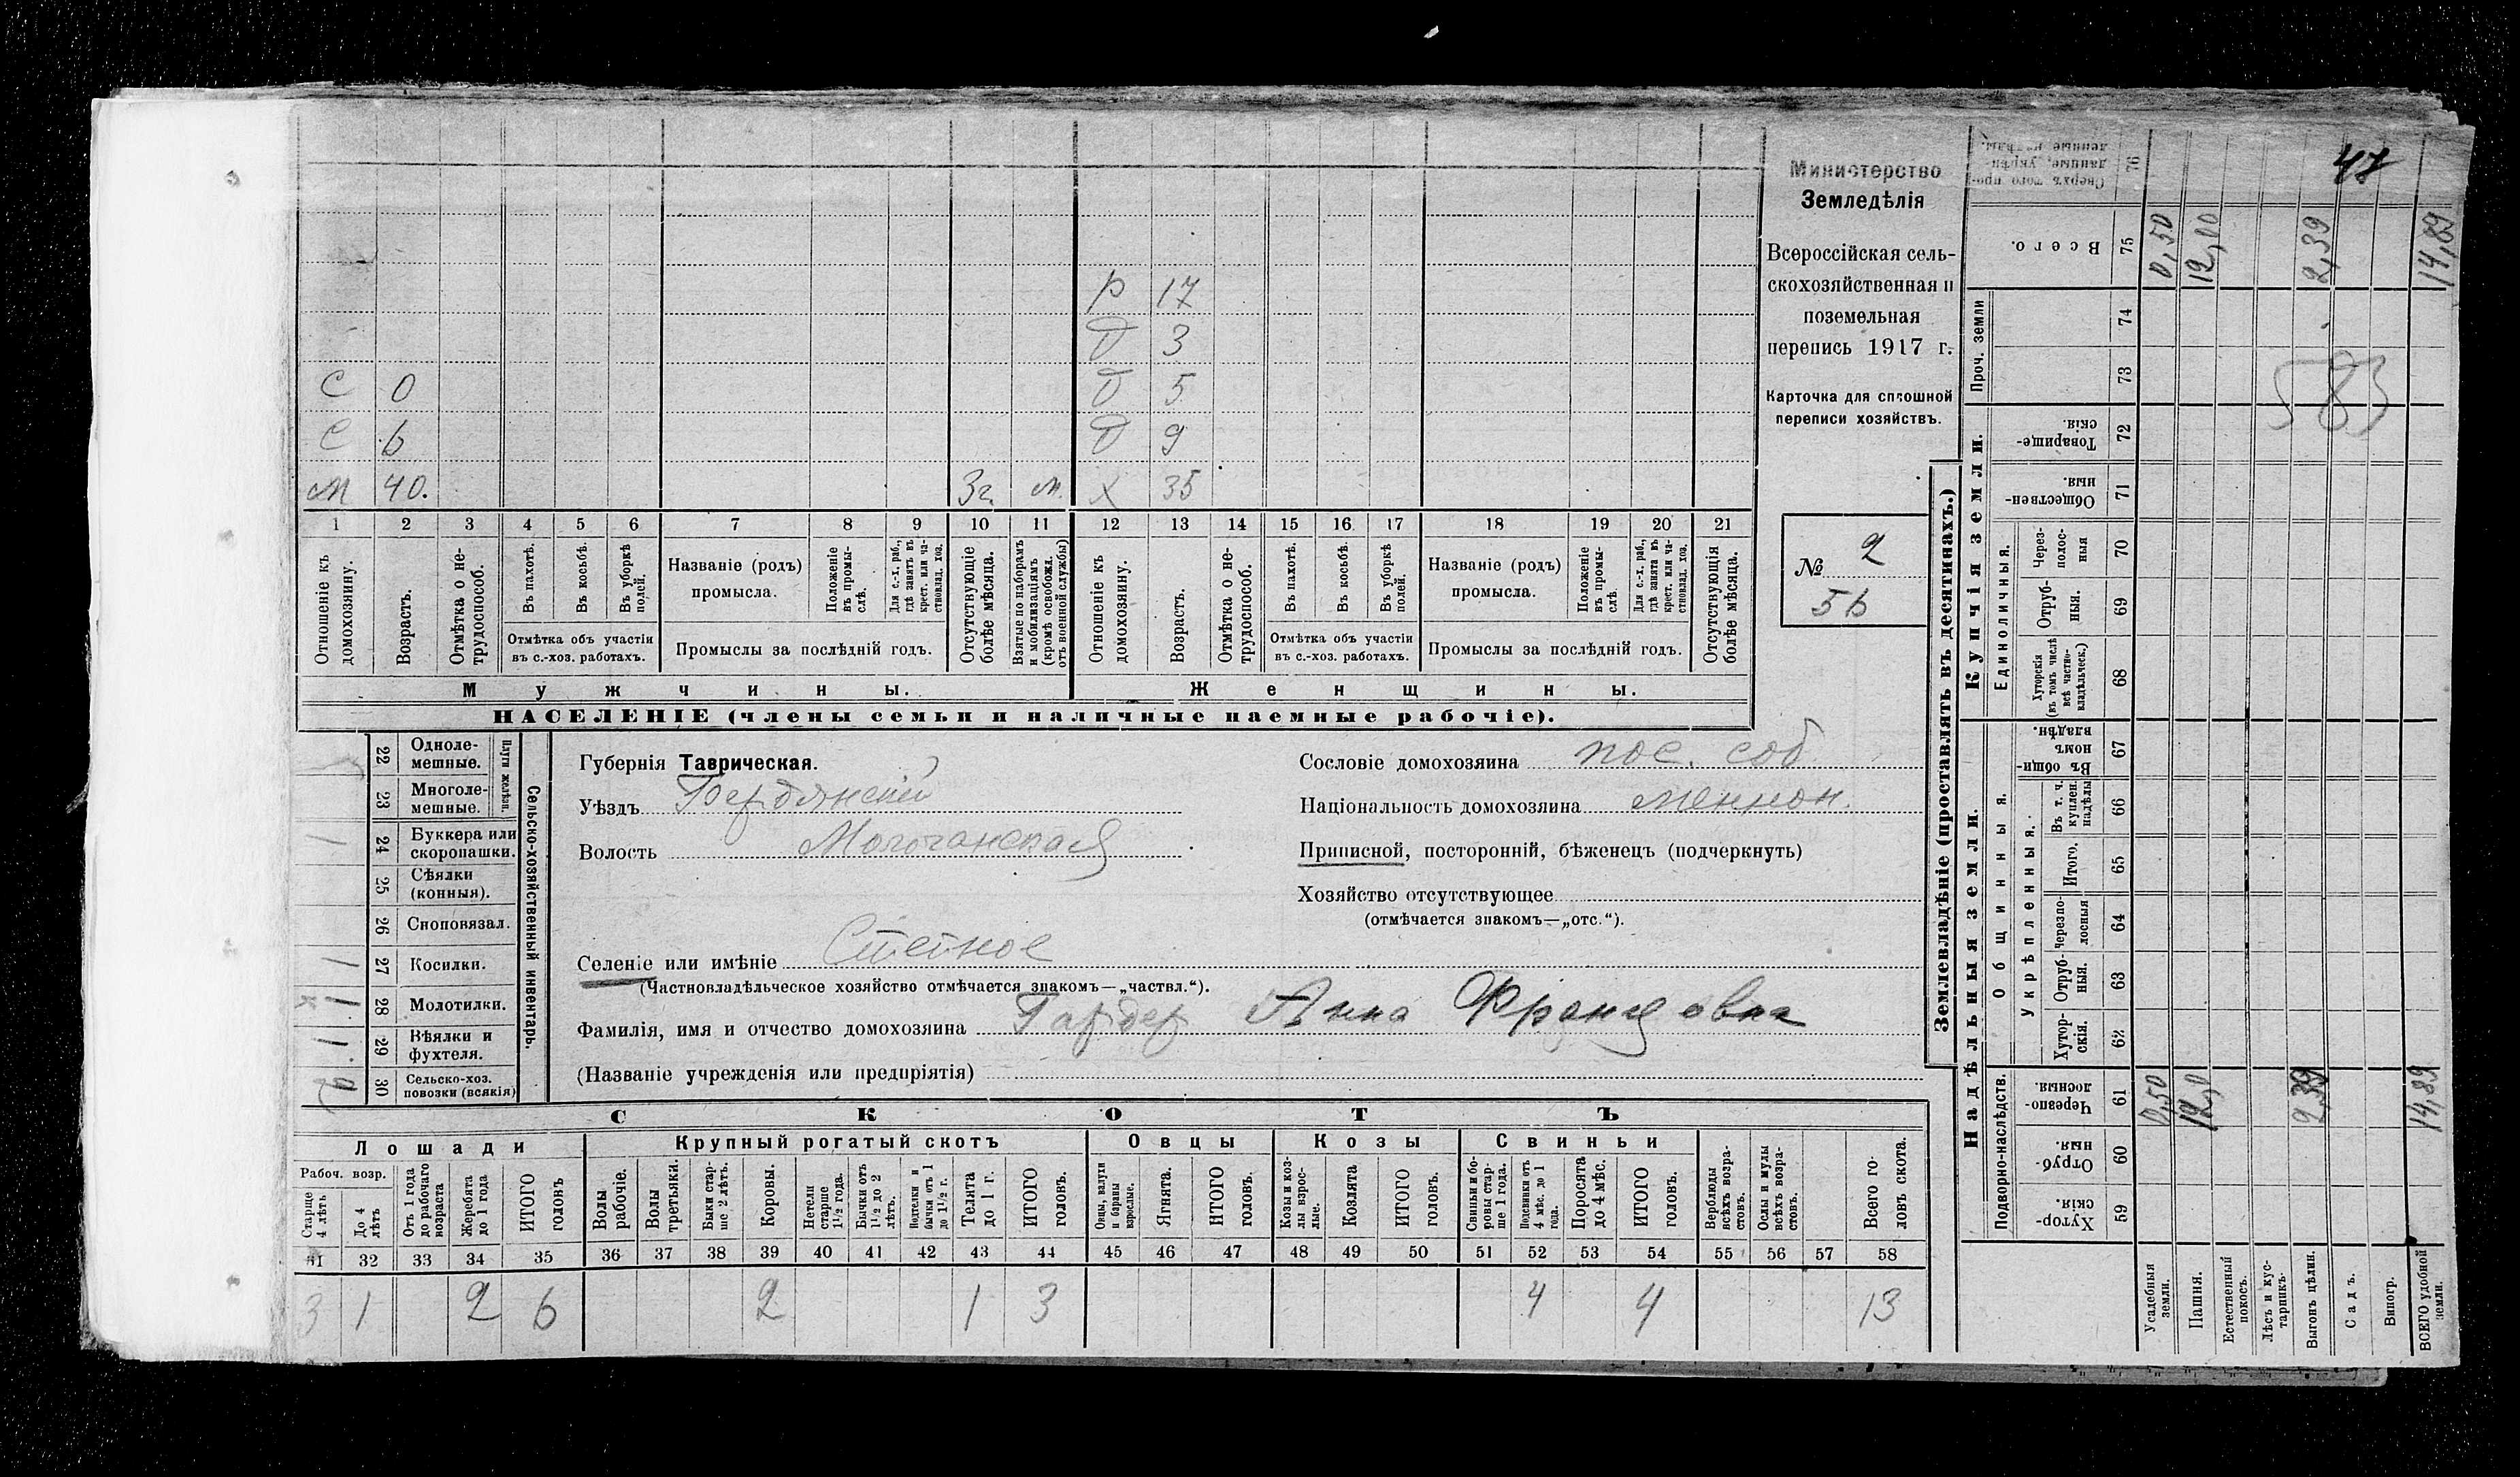 47
Министерство
Земледѣлія
Всероссійская сель-
скохозяйственная и
поземельная
перепись 1917 г.
Карточка для сплошной
переписи хозяйствъ.
№ 2
56
Р 17
Д 3
С 0 Д 5
С 6 Д 9
М 40. 3г. м. Х 35
1 2 3 4 5 6 7 8 9 10 11 12 13 14 15 16 17 18 19 20 21
Отношеніе къ домохозяину.
Возрасть.
Отмѣтка о не-трудоспособ.
Въ пахотѣ.
Въ косьбѣ.
Въ уборкѣ полей.
Отмѣтка объ участіи
въ с.-хоз. работахъ.
Названіе (родъ)
промысла.
Положеніе въ промы-слѣ.
Для с.-х. раб., гдѣ занятъ въ крест. или ча-стновлад. хоз.
Промыслы за послѣдній годъ.
Отсутствующіе болѣе мѣсяца.
Взятые по наборамъ и мобилизаціямъ (кромѣ освобожд. отъ военной службы)
Отношеніе къ домохозяину.
Возрасть.
Отмѣтка о не-трудоспособ.
Въ пахотѣ.
Въ косьбѣ.
Въ уборкѣ полей.
Отмѣтка объ участіи
въ с.-хоз. работахъ.
Названіе (родъ)
промысла.
Положеніе въ промы-слѣ.
Для с.-х. раб., гдѣ занята въ крест. или ча-стновлад. хоз.
Промыслы за послѣдній годъ.
Отсутствующія болѣе мѣсяца.
Мужчины. Женщины.
НАСЕЛЕНІЕ (члены семьи и наличные наемные рабочіе).
Сельско-хозяйственный инвентарь.
Плуги желѣз.
22 Одноле-мешные.
23 Многоле-мешные.
1 24 Буккера или скоропашки.
25 Сѣялки (конныя).
26 Сноповязал.
1 27 Косилки.
1 28 Молотилки.
1 29 Вѣялки и фухтеля.
2 30 Сельско-хоз. повозки (всякія)
Губернія Таврическая.
Уѣздъ Бердянскій
Волость Молочанская
Селеніе или имѣніе Степное
(Частновладѣльческое хозяйство отмѣчается знакомъ—„частвл.“).
Фамилія, имя и отчество домохозяина Гардер Анна Францовна
(Названіе учрежденія или предпріятія)
Сословіе домохозяина пос. соб.
Національность домохозяина меннон.
Приписной, посторонній, бѣженецъ (подчеркнуть)
Хозяйство отсутствующее
(отмѣчается знакомъ—„отс.“).
СКОТЪ
Лошади Крупный рогатый скотъ Овцы Козы Свиньи
Рабоч. возр.
Старше 4 лѣтъ
До 4 лѣтъ
Отъ 1 года до рабочаго возраста
Жеребята до 1 года
ИТОГО головъ
Волы рабочіе.
Волы третьяки.
Быки стар-ше 2 лѣтъ.
Коровы.
Нетели старше 1½ года.
Бычки отъ 1½ до 2 лѣтъ.
Подтелки и бычки отъ 1 до 1½ г.
Телята до 1 г.
ИТОГО головъ.
Овцы, валухи и бараны взрослые.
Ягнята.
ИТОГО головъ.
Козы и коз-лы взрос-лые.
Козлята
ИТОГО головъ.
Свиньи и бо-ровы стар-ше 1 года.
Подсвинки отъ 4 мѣс. до 1 года.
Поросята до 4 мѣс.
ИТОГО головъ.
Верблюды всѣхъ возра-стовъ.
Ослы и мулы всѣхъ возра-стовъ.
Всего го-ловъ скота.
31 32 33 34 35 36 37 38 39 40 41 42 43 44 45 46 47 48 49 50 51 52 53 54 55 56 57 58
3 1 2 6 2 1 3 4 4 13
Землевладѣніе (проставлять въ десятинахъ.)
Надѣльныя земли. Купчія земли. Проч. земли
Подворно-наслѣдств. Общинныя. Укрѣпленныя. Единоличныя.
Хутор-скія. 59
Отруб-ныя. 60
Черезпо-лосныя. 61
Хутор-скія. 62
Отруб-ныя. 63
Черезпо-лосныя 64
Итого. 65
Въ т. ч. куплен. надѣлы 66
Въ общи-номъ владѣн. 67
Хуторскія (въ томъ числѣ всѣ частно-владѣльческ.) 68
Отруб-ныя. 69
Через-полос-ныя 70
Обществен-ныя. 71
Товарище-скія. 72
73
74
Всего. 75
Сверхъ того про-данные, укрѣп-ленные надѣлы. 76
Усадебныя земли. 0,50 0,50
Пашня. 12,0 12,00
Естественный покосъ.
Лѣсъ и кус-тарникъ.
Выгонъ цѣлин. 2,39 2,39
Садъ.
Виногр.
ВСЕГО удобной земли. 14,89 14,89
583